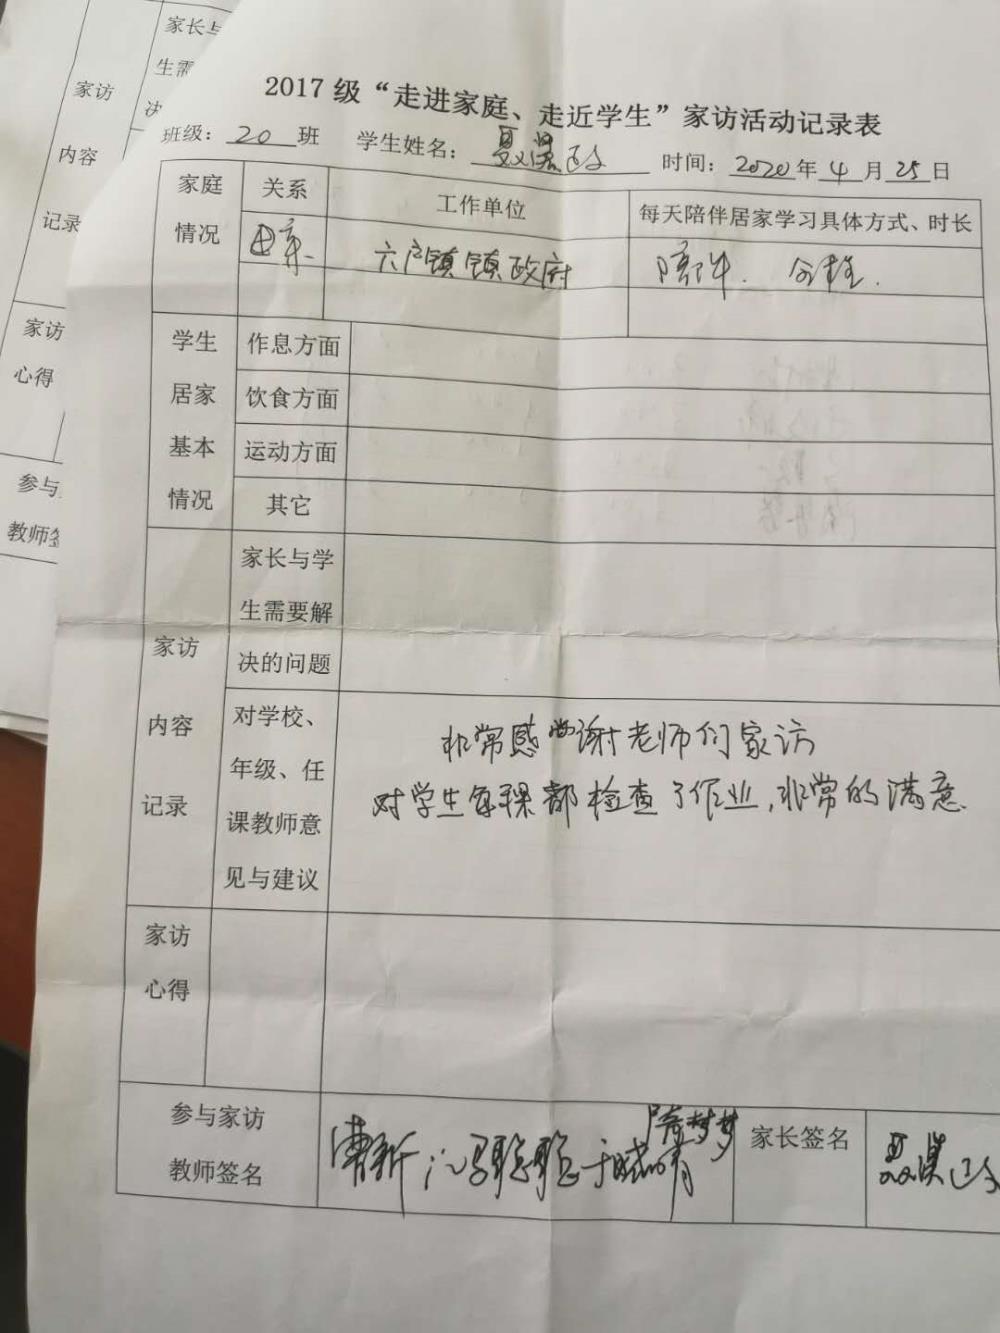 家长与
生需
决
家访
内容
记录
家访
心得
参与
教师签
2017级“走进家庭、走近学生”家访活动记录表
班级：20班 学生姓名： 时间：2020年4月25日
家庭
情况
关系
工作单位
每天陪伴居家学习具体方式、时长
六户镇镇政府
陪伴. 全程.
学生
居家
基本
情况
作息方面
饮食方面
运动方面
其它
家访
内容
记录
家长与学
生需要解
决的问题
对学校、
年级、任
课教师意
见与建议
非常感谢老师们家访
对学生每课都检查了作业,非常的满意
家访
心得
参与家访
教师签名
家长签名